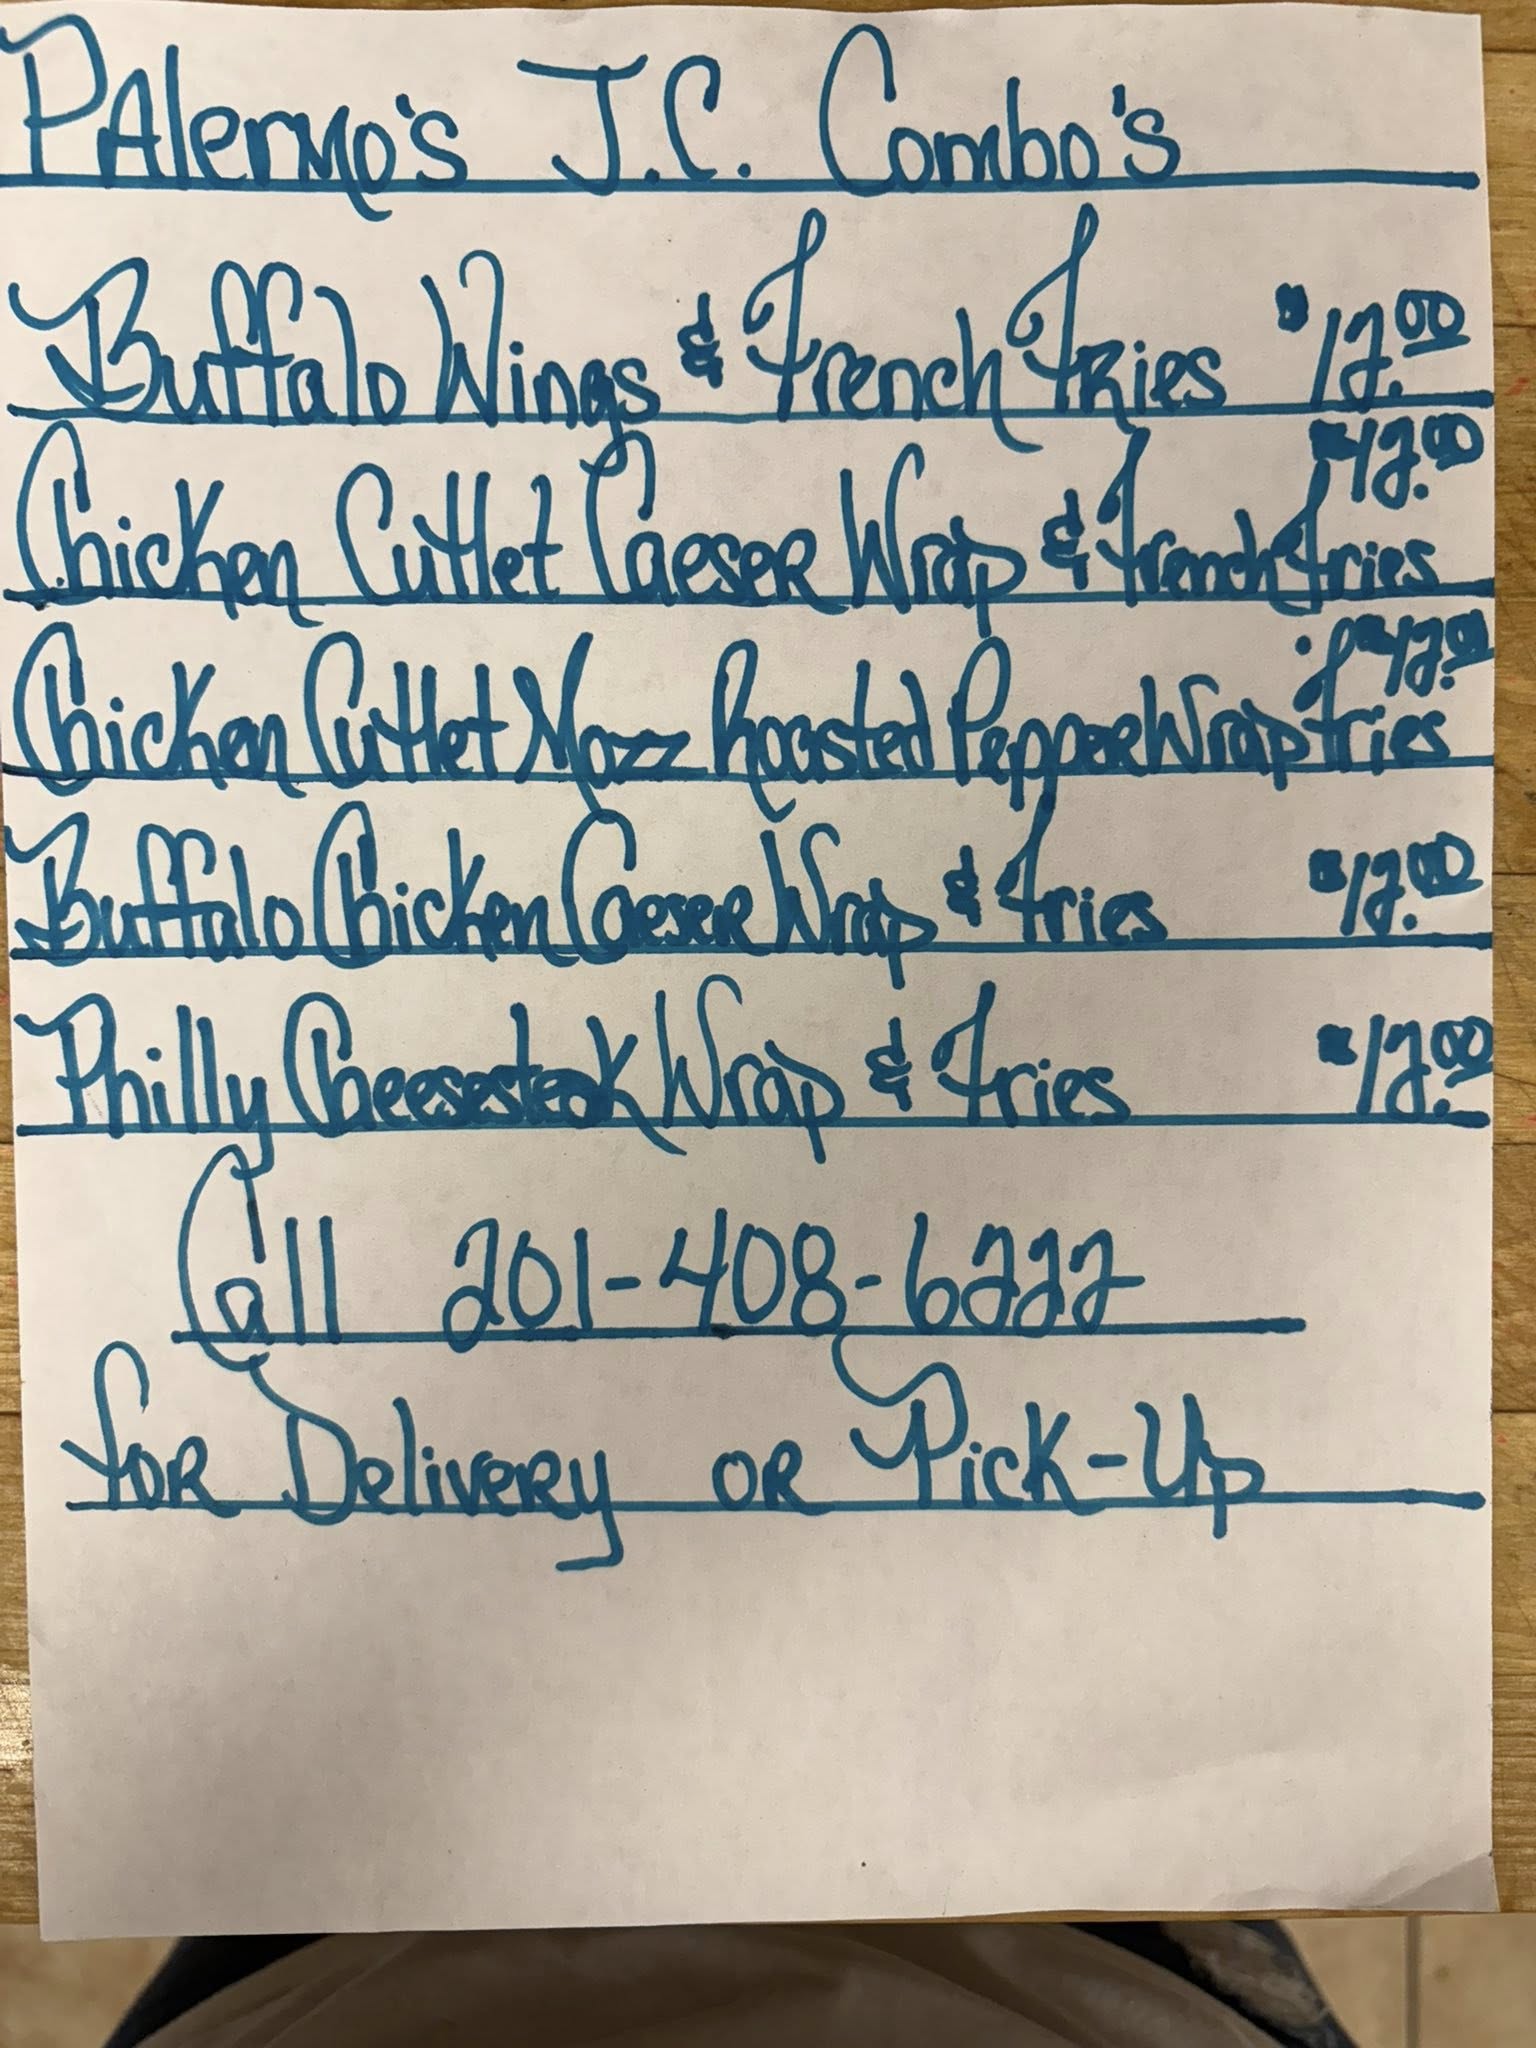 Palermo's J.C. Combo's
Buffalo Wings & French Fries $12.00
Chicken Cutlet Caeser Wrap & French Fries $12.00
Chicken Cutlet Mozz Roasted Pepper Wrap Fries $12.00
Buffalo Chicken Caeser Wrap & Fries $12.00
Philly Cheesesteak Wrap & Fries $12.00
Call 201-408-6222
for Delivery or Pick-Up